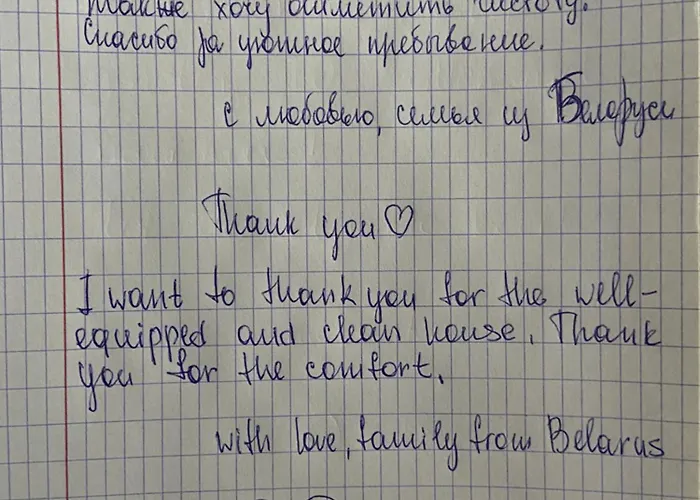 Также хочу отметить чистоту.
Спасибо за уютное пребывание.
с любовью, семья из Беларуси
Thank you♡
I want to thank you for the well-
equipped and clean house. Thank
you for the comfort.
with love, family from Belarus